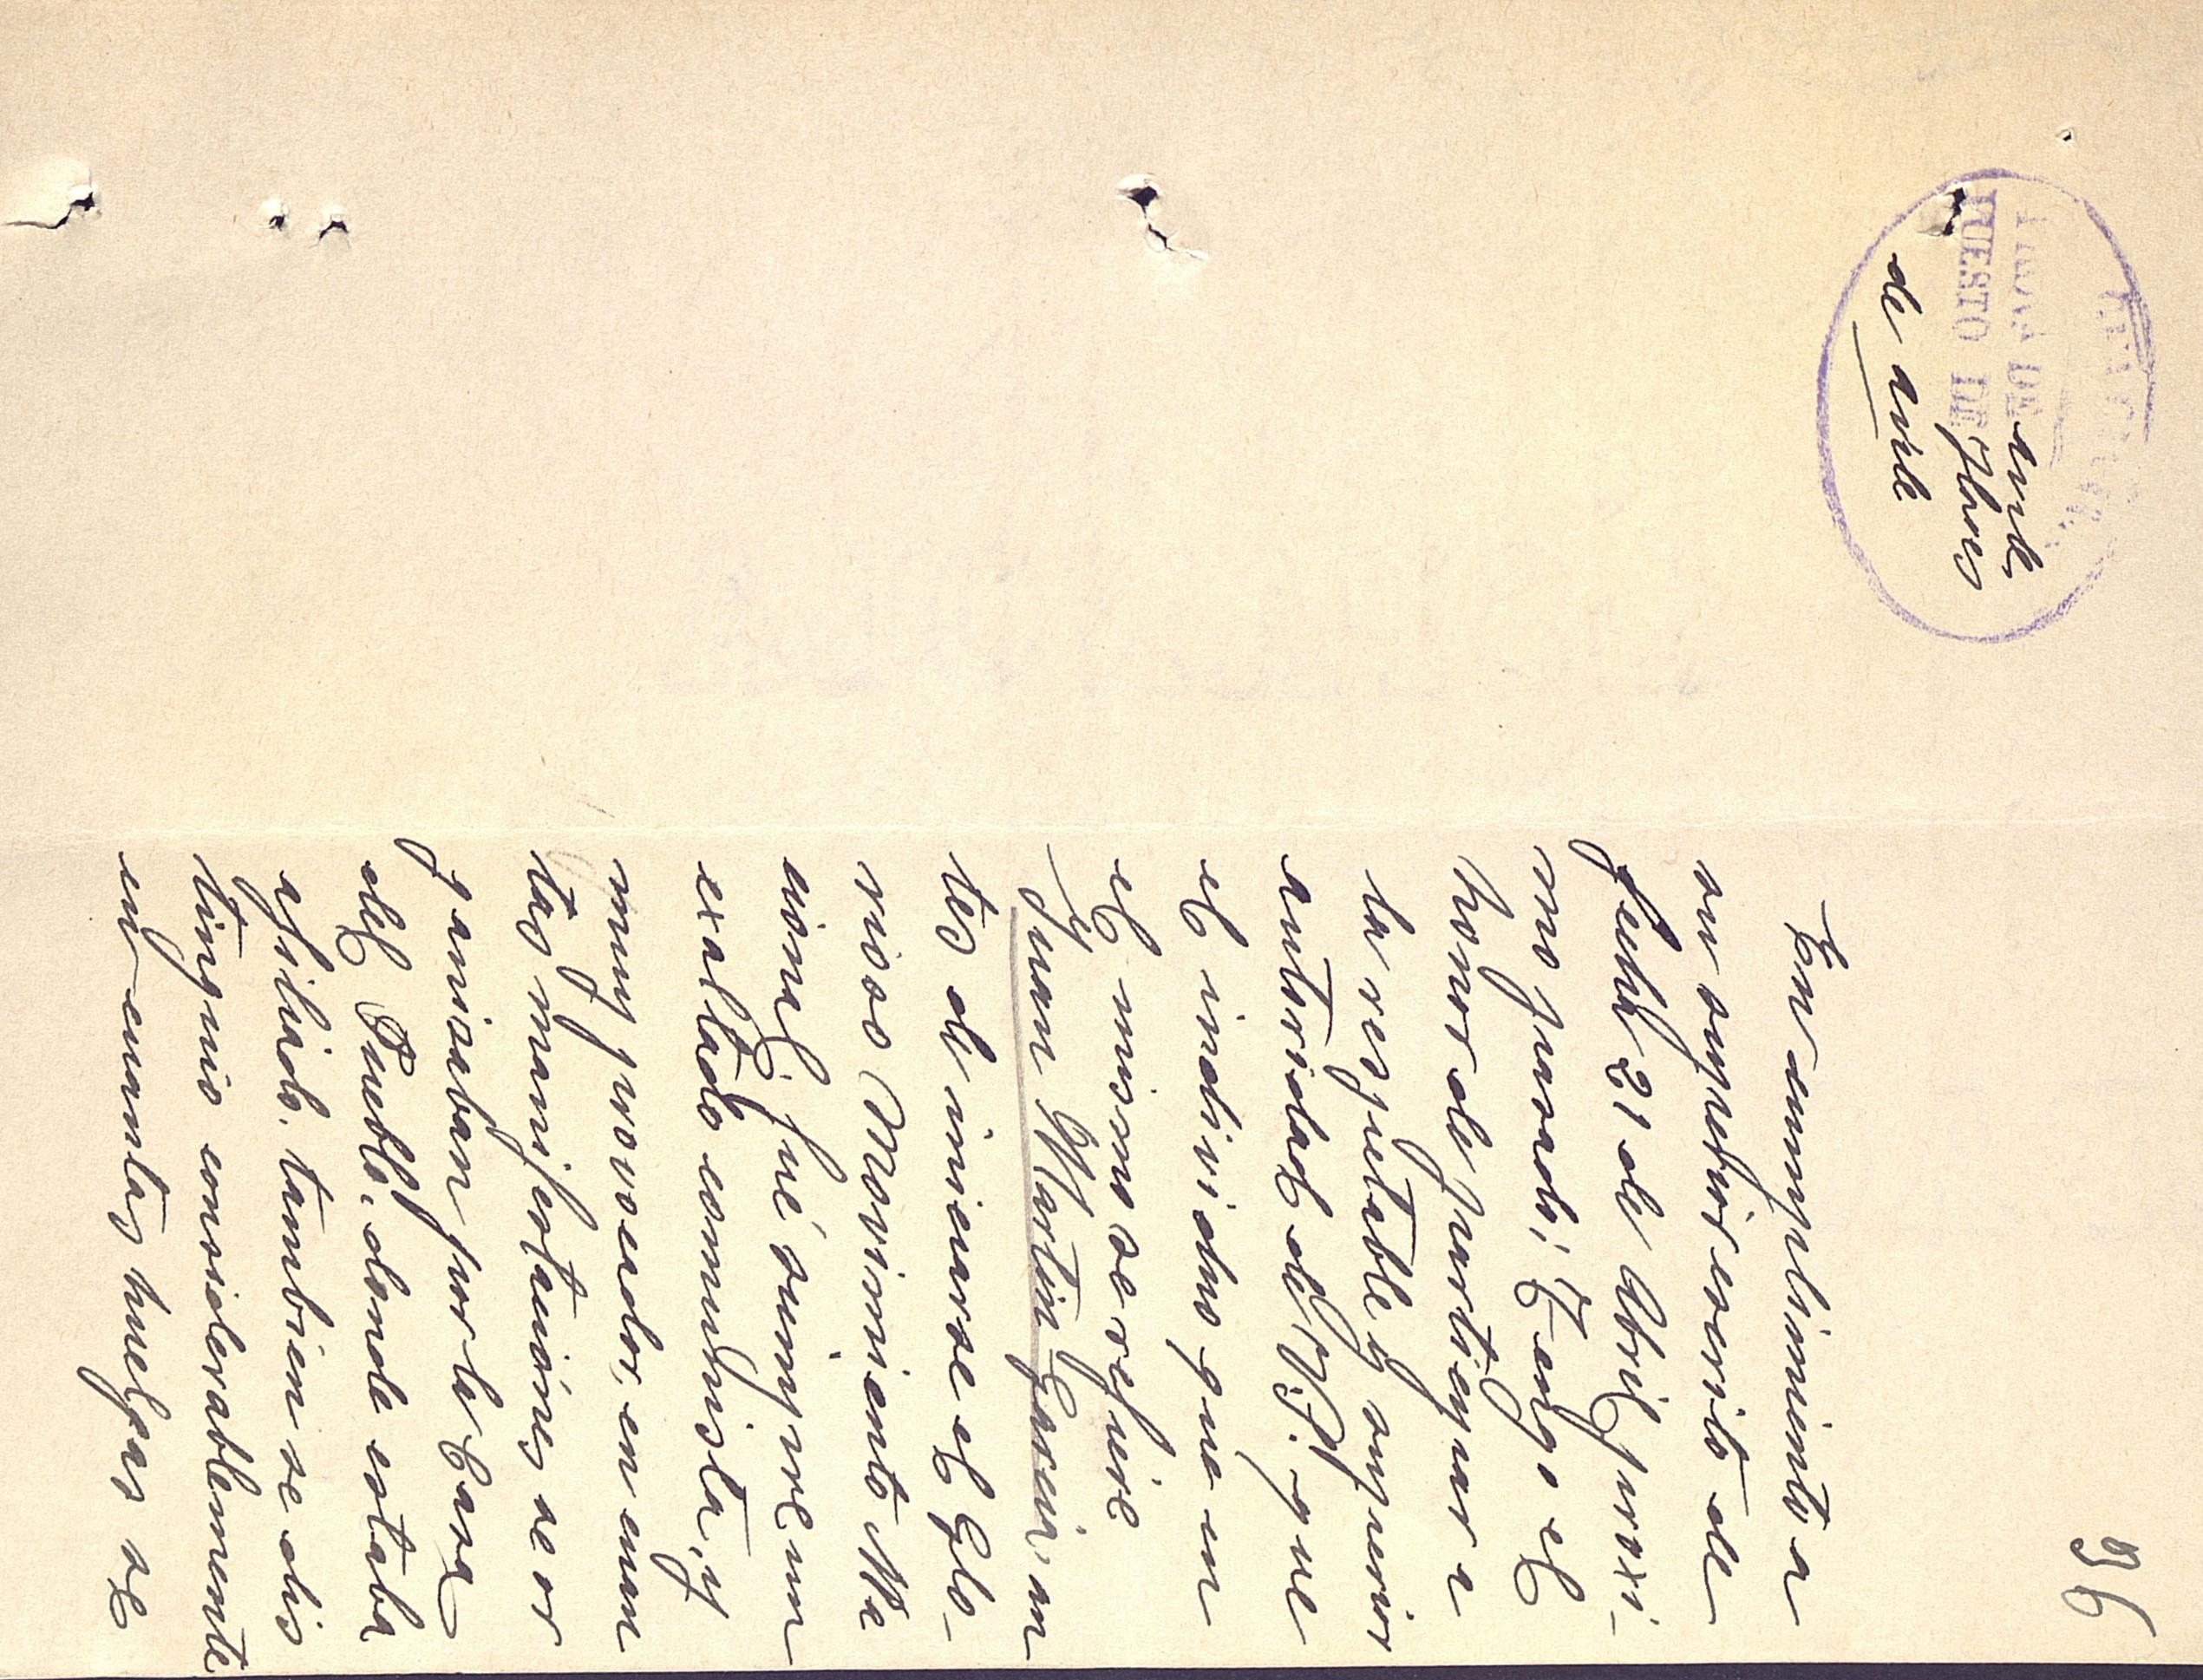 96
PUESTO DE
de
En cumplimiento a
su superior escrito de
fecha 21 de Abril proxi-
mo pasado; Tengo el
honor de participar a
la respetable y superior
autoridad de V.S. que
el individuo que en
el mismo se refiere
Juan Martin Garcia, an
tes de iniciarse el Glo-
rioso Movimiento Na
cional, fué siempre un
exaltado comunista, y
muy provocador, en cuan
tas manifestaciones se or
ganizaban por la Casa
del Pueblo, donde estaba
afiliado, tambien se dis
tinguio considerablemente
en cuantas huelgas se